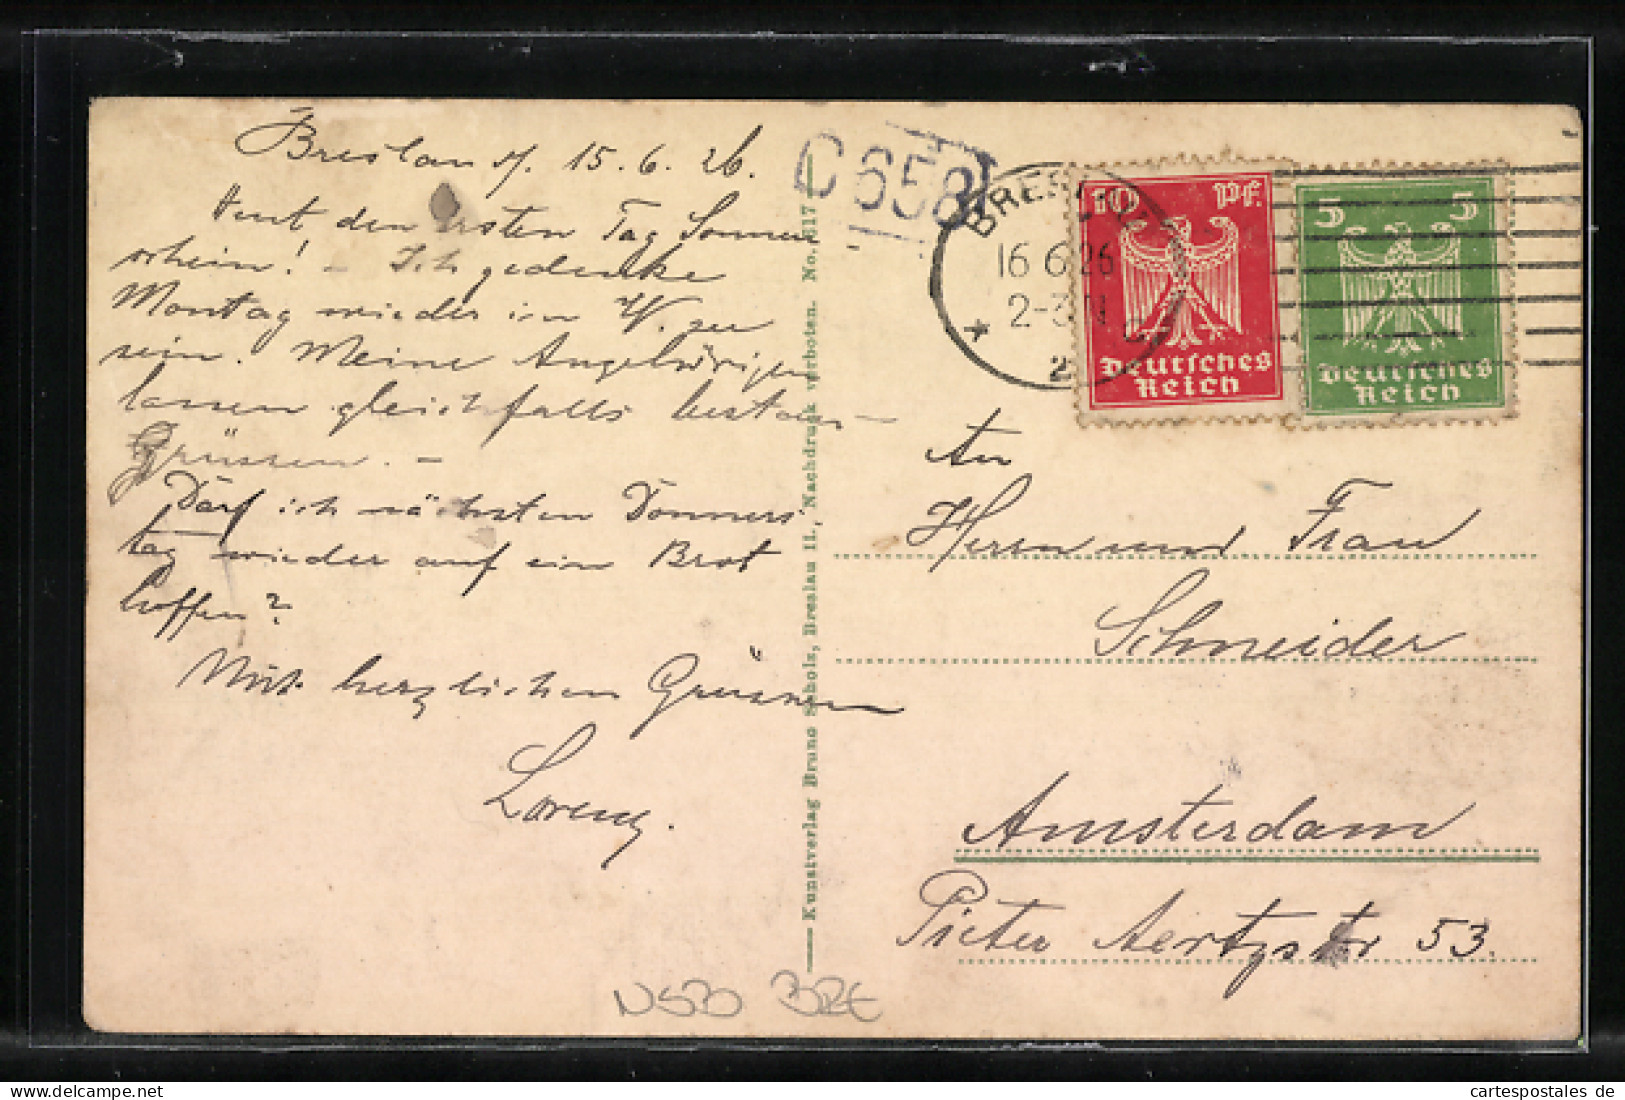 Breslau d/. 15.6.26.
Heut den ersten Tag Sonnen
schein! – Ich gedenke
Montag wieder in W. zu
sein. Meine Angehörigen
lassen gleichfalls bestens
Grüssen. –
Darf ich nächsten Donners
tag wieder auf ein Brot
hoffen?
Mit herzlichen Grüssen
Lorenz.
Kunstverlag Bruno Scholz, Breslau 11., Nachdruck verboten. No. 617
C 658
BRESLAU
16.6.26
2-3 N
* 2
10 Pf.
Deutsches
Reich
5 5
Deutsches
Reich
An
Herrn und Frau
Schneider
Amsterdam
Pieter Aertzstr 53.
NS30 BRE
cartespostales de